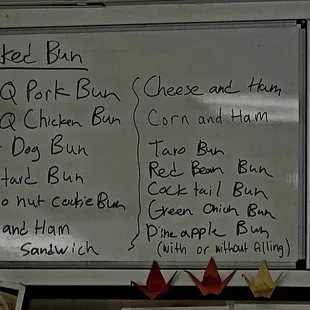 ked Bun
Q Pork Bun
Q Chicken Bun
Dog Bun
tard Bun
o nut cookie Bun
and Ham
Sandwich
Cheese and Ham
Corn and Ham
Taro Bun
Red Bean Bun
Cocktail Bun
Green Onion Bun
Pineapple Bun
(with or without filling)